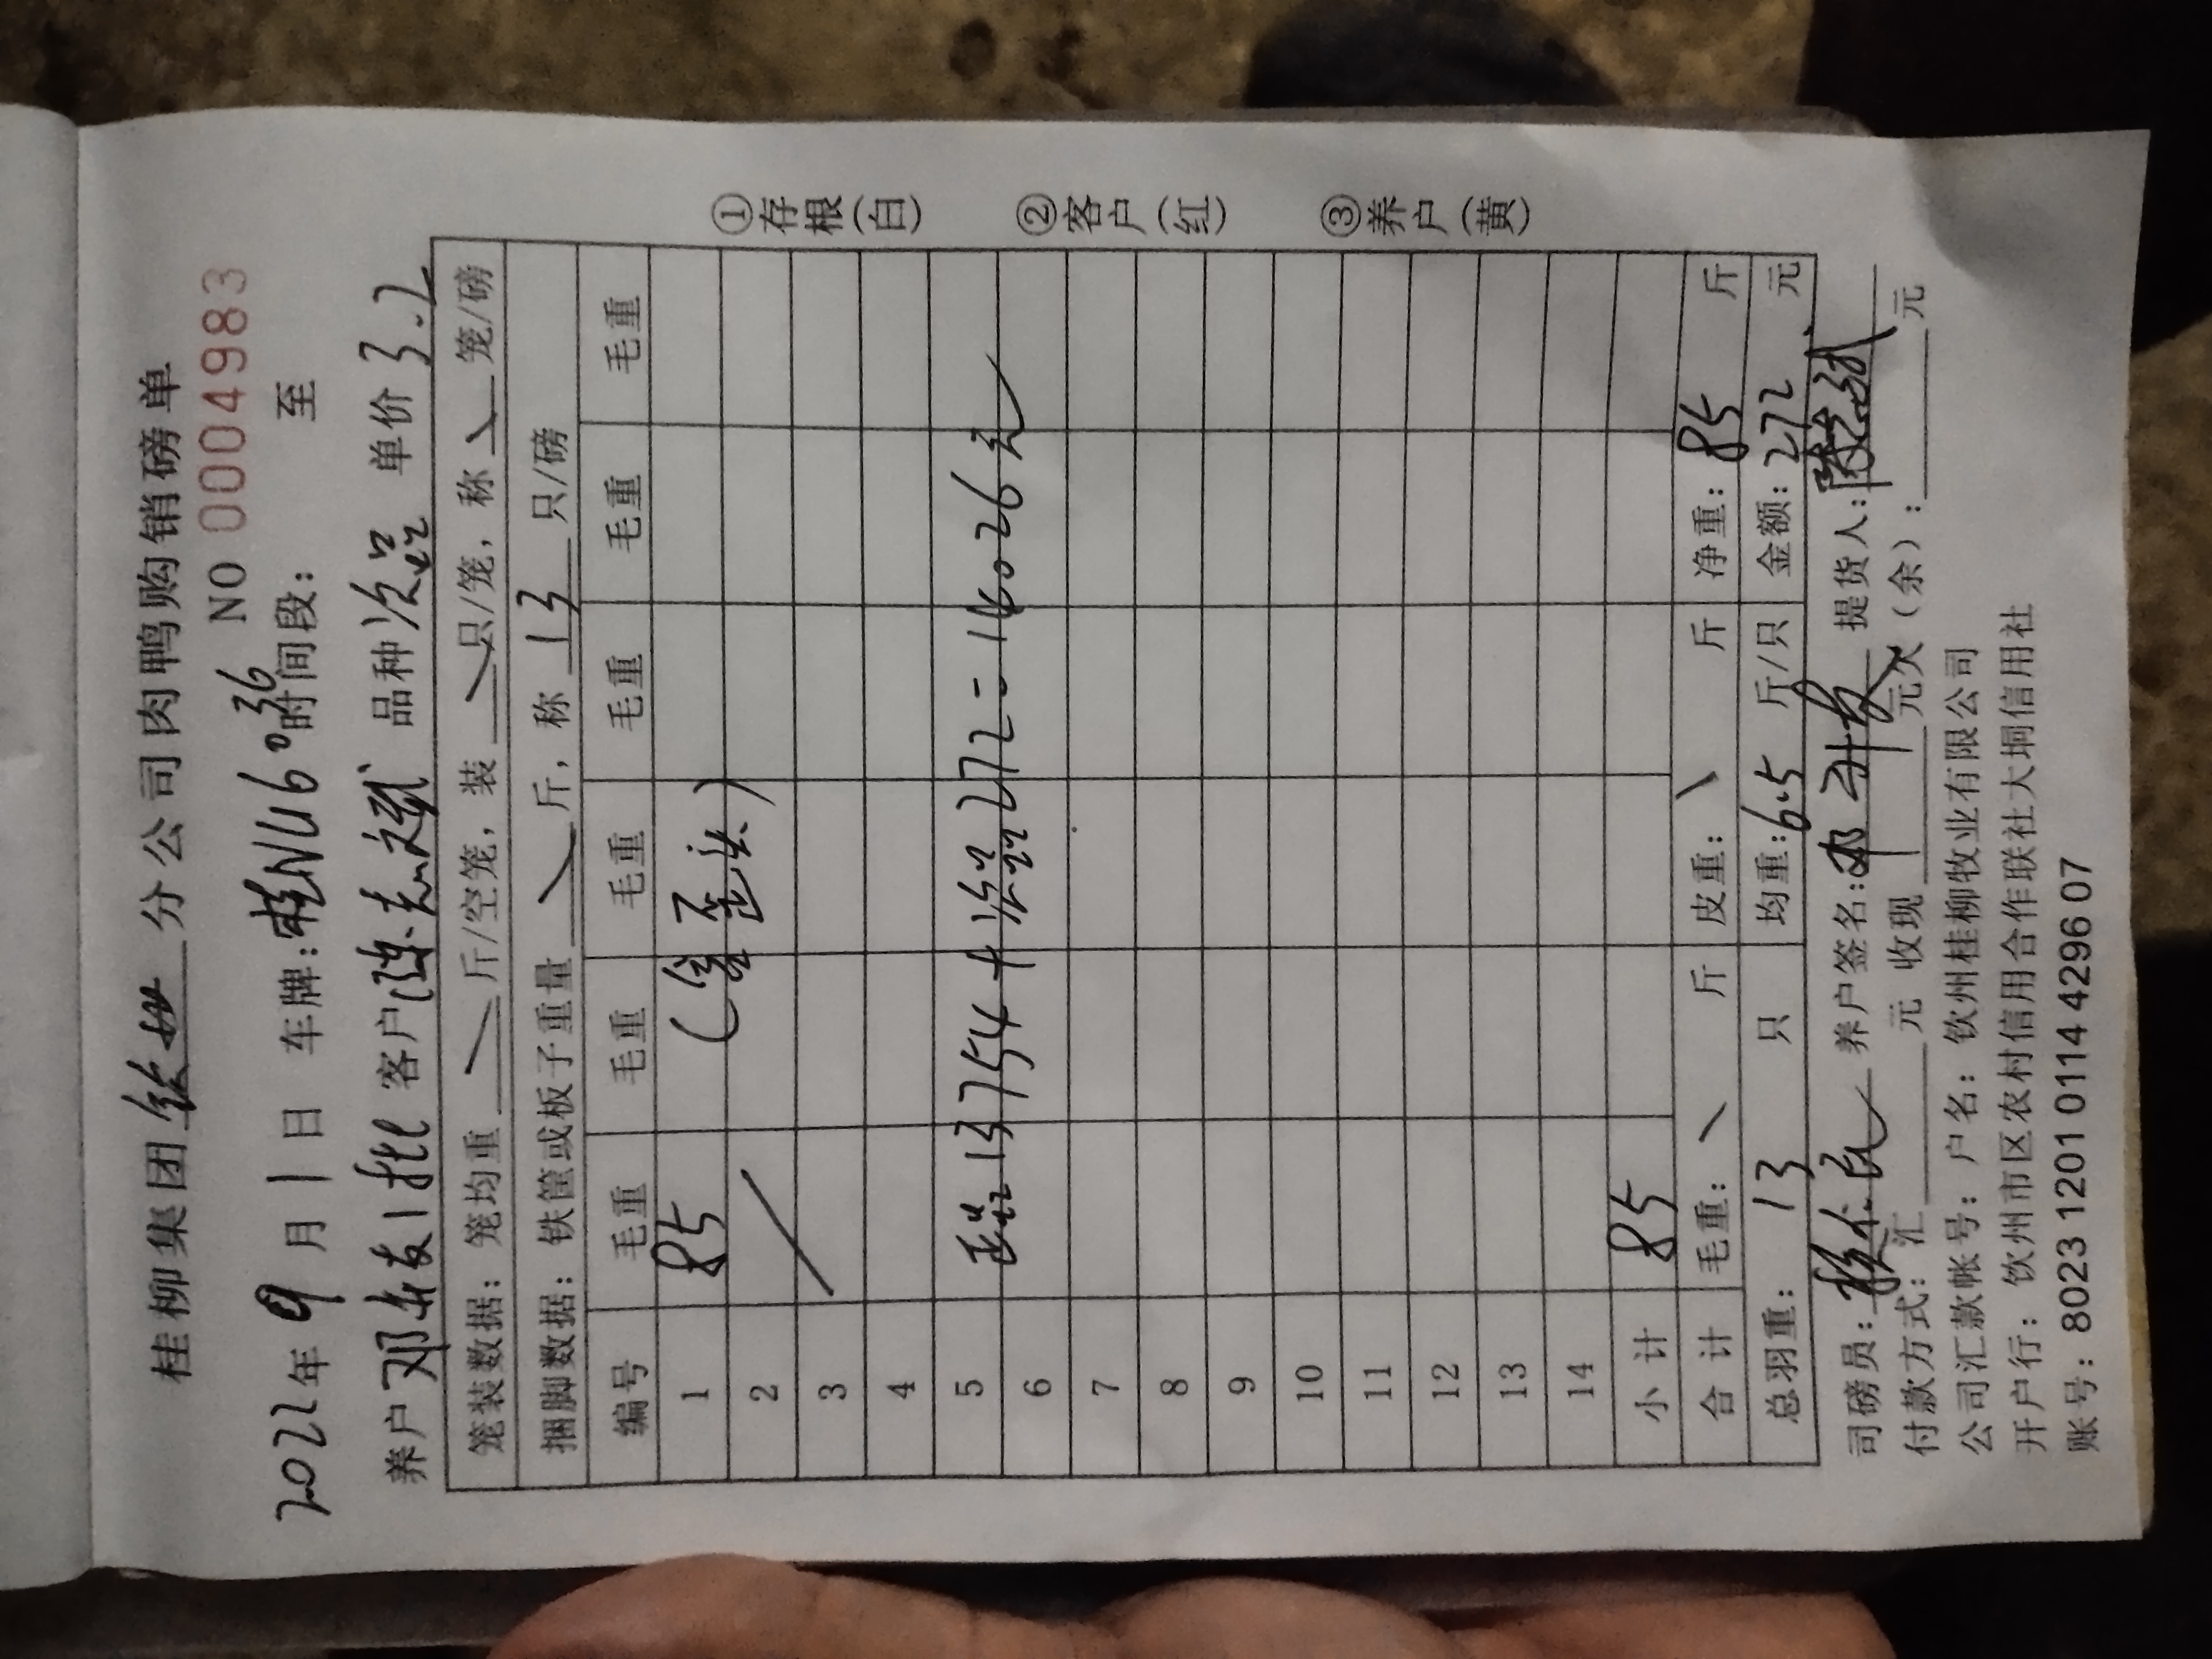 桂柳集团 钦州 分公司肉鸭购销磅单
NO 0004983
2022年9月1日 车牌:桂NU6036 时间段: 至
养户 邓年友1批 客户 陈志斌 品种 次品 单价 3.2
笼装数据: 笼均重 / 斤/空笼, 装 / 只/笼, 称 / 笼/磅
捆脚数据: 铁筐或板子重量 / 斤, 称 13 只/磅
编号 毛重 毛重 毛重 毛重 毛重 毛重
1 85 ( 歪头)
2
3
4
5 正品13754+次品272=14026元
6
7
8
9
10
11
12
13
14
小计 85
合计 毛重: / 斤 皮重: / 斤 净重: 85 斤
总羽重: 13 只 均重:6.5 斤/只 金额: 272 元
司磅员: 养户签名: 提货人: 陈志斌
付款方式: 汇 元 收现 元欠(余): 元
公司汇款帐号: 户名: 钦州桂柳牧业有限公司
开户行: 钦州市区农村信用合作联社大垌信用社
账号: 8023 1201 0114 4296 07
①存根(白) ②客户(红) ③养户(黄)